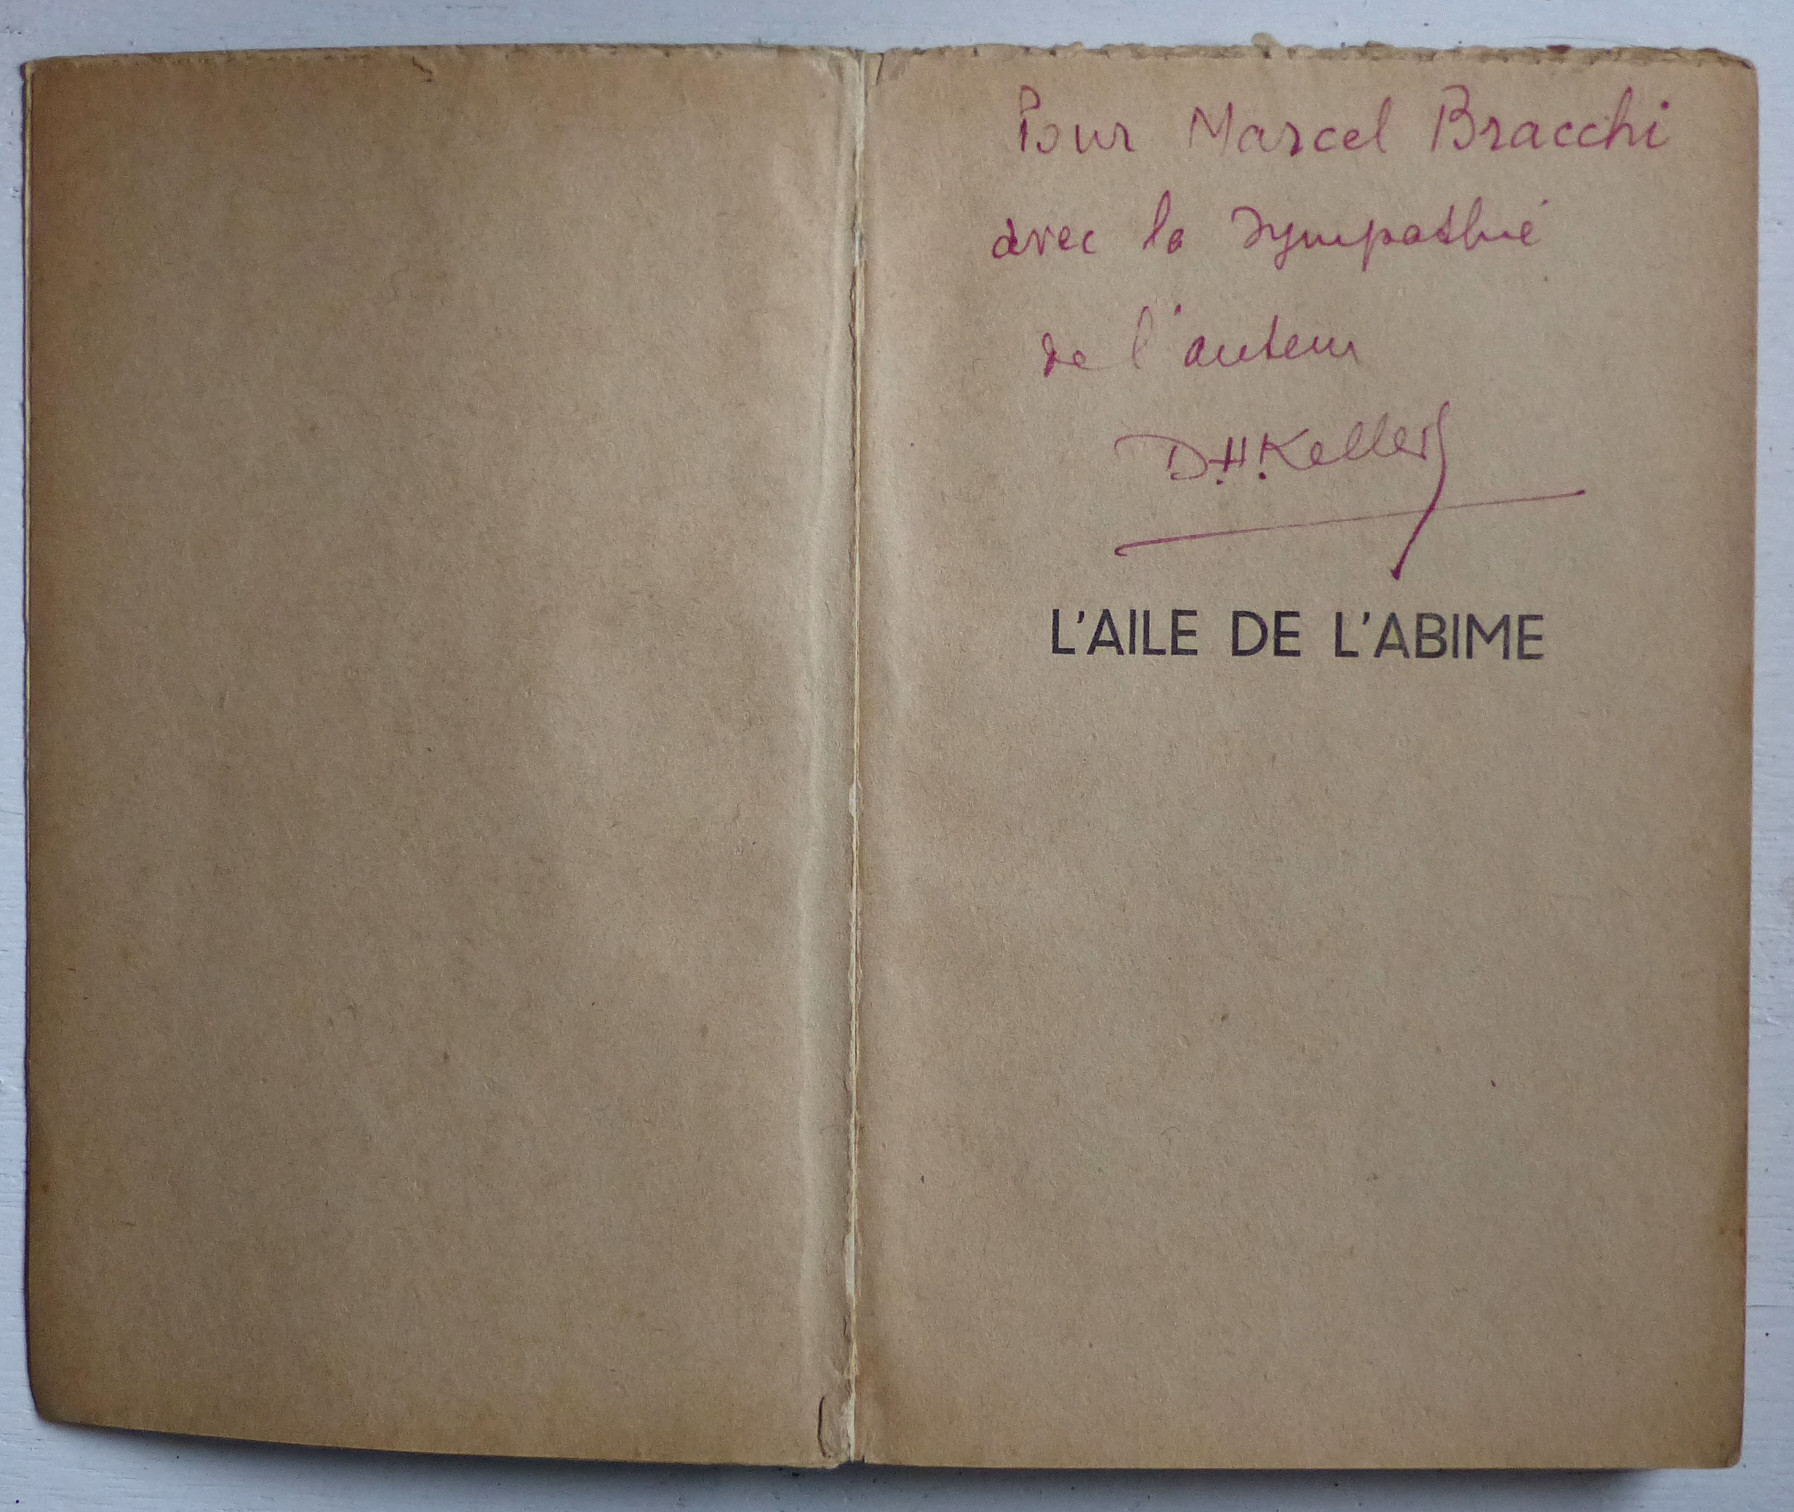 Pour Marcel Bracchi
avec la sympathie
de l'auteur
D.H.Keller
L'AILE DE L'ABIME